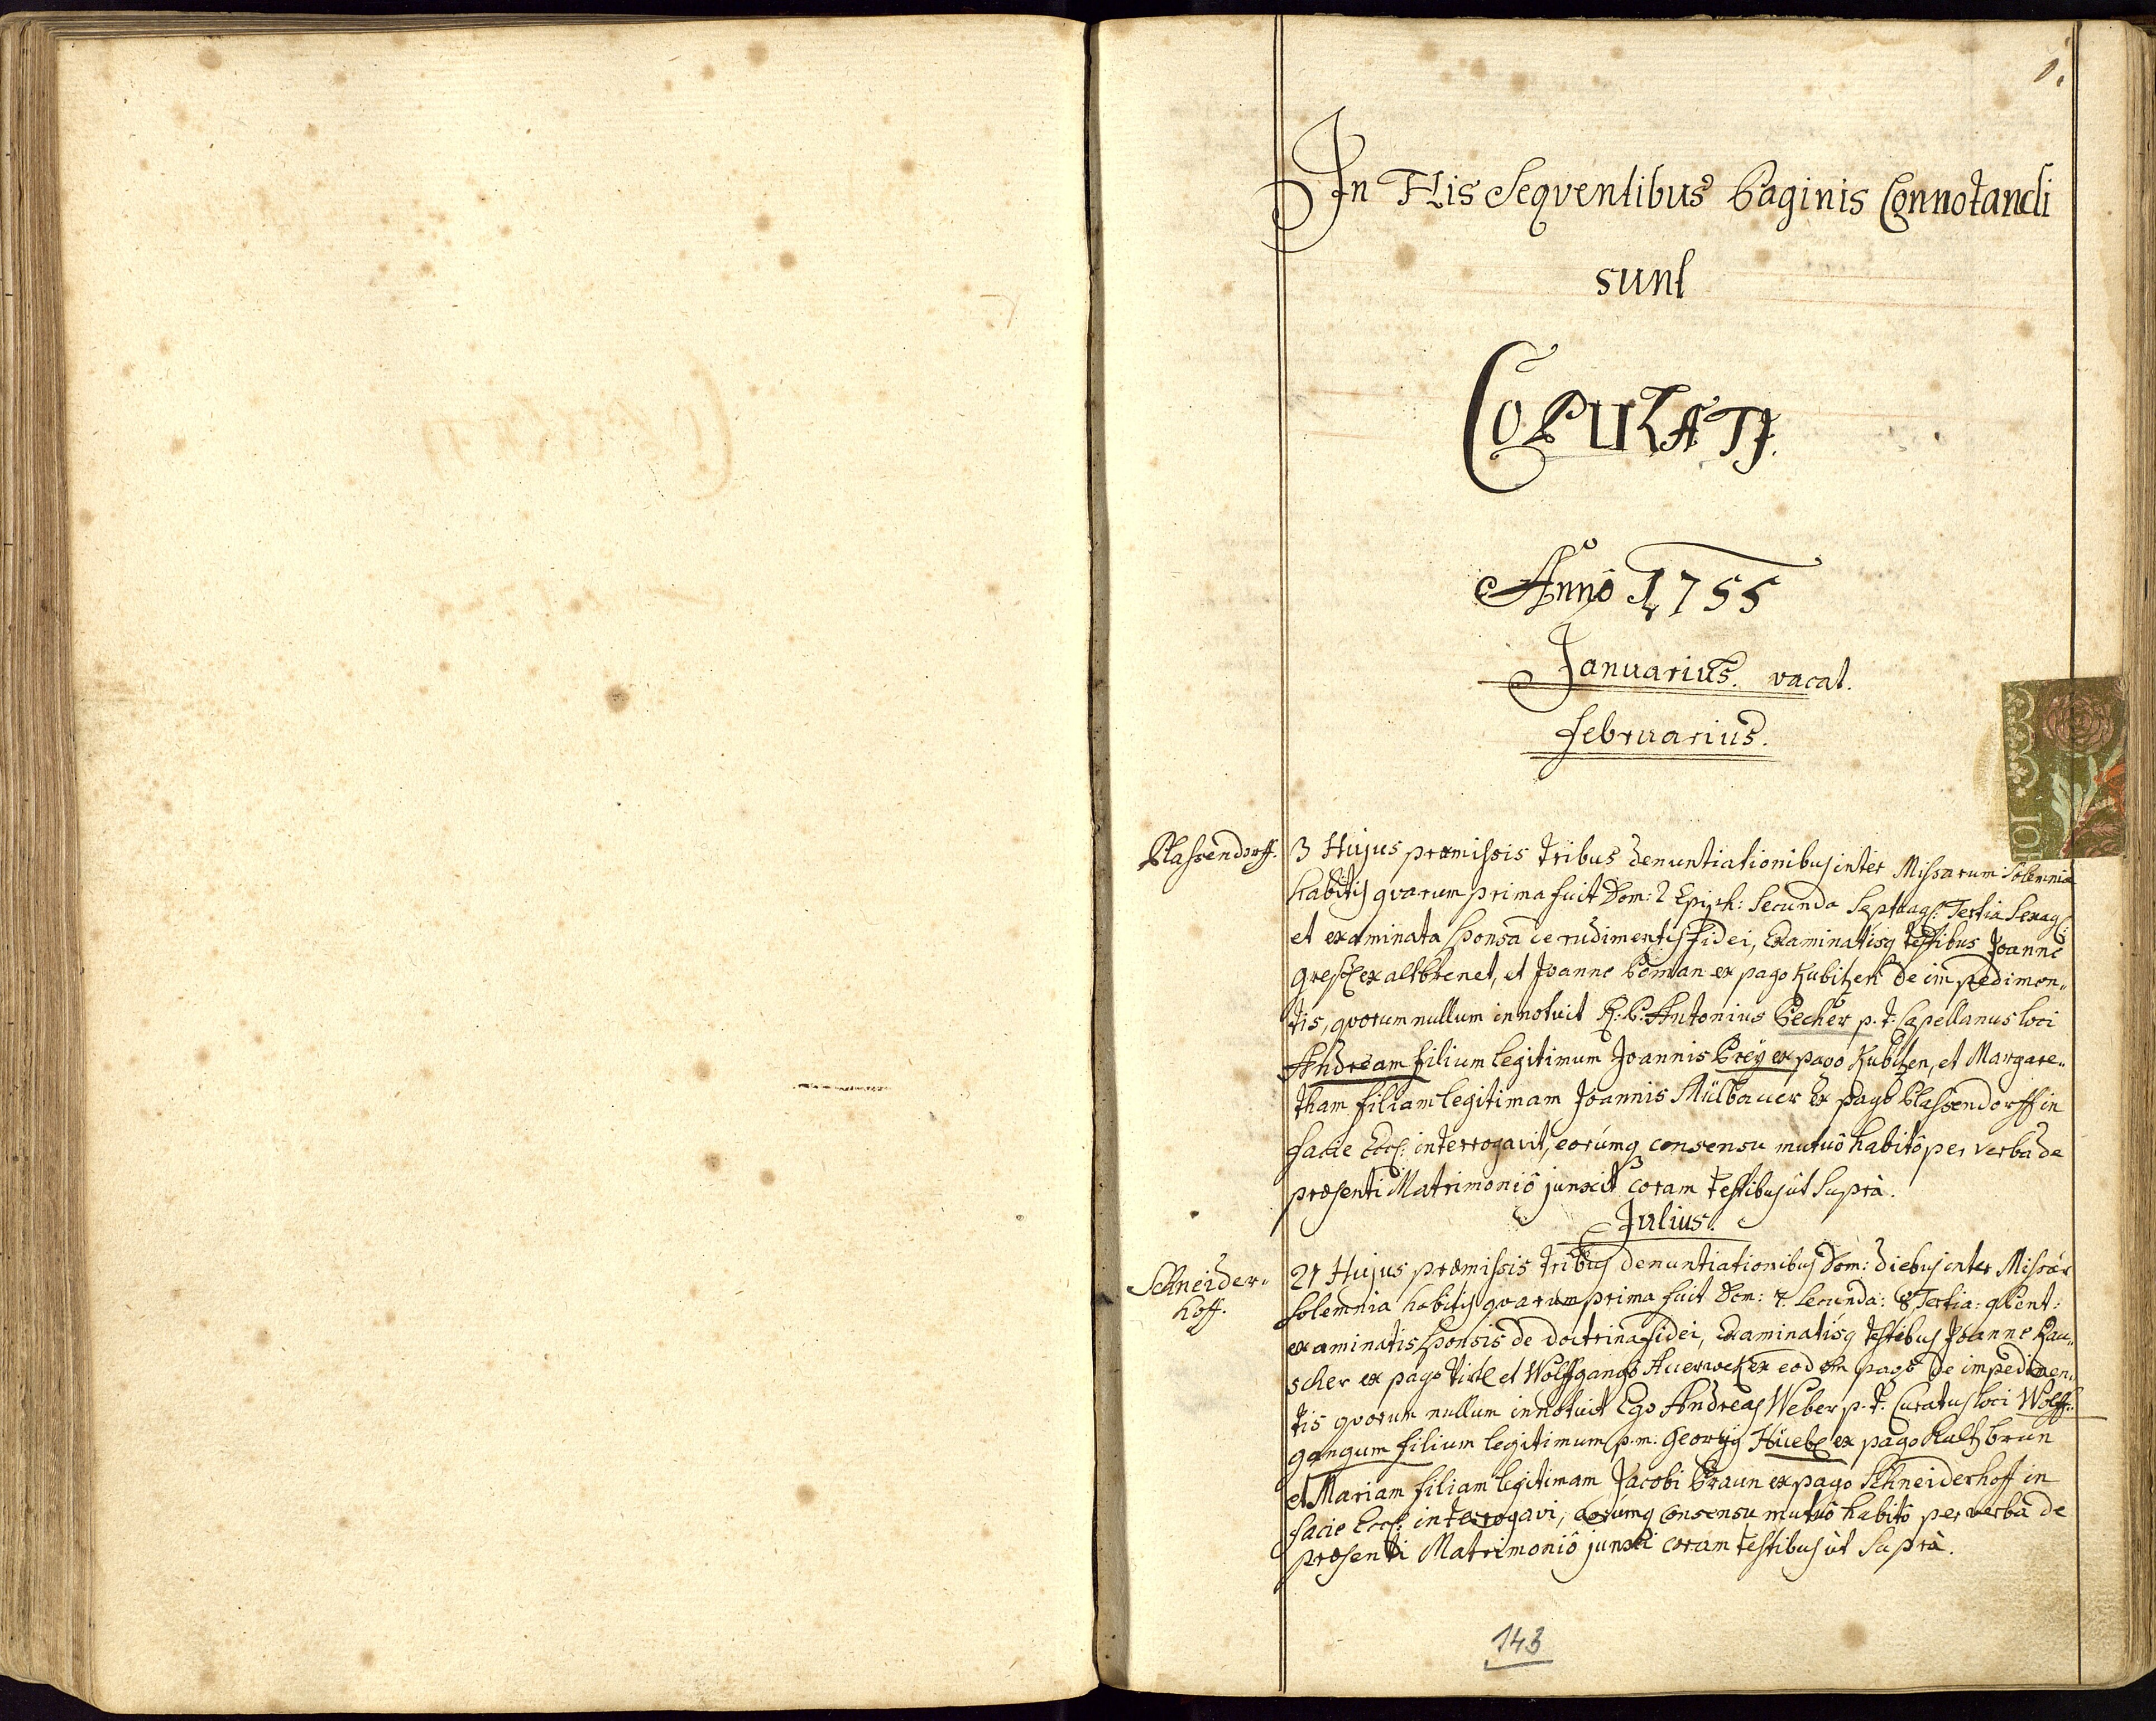 1.
In His Seqventibus Paginis Connotandi
sunt
COPULATI.
Annô 1755
Januarius. vacat.
Februarius.
Plassendorff.
3 Hujus præmissis tribus denuntiationibus inter Missarum Solemnia
habitis qvarum prima fuit Dom: 2 Epiph: Secunda Septuag: Tertia Sexag:
et examinata sponsa de rudimentis Fidei, Examinatisq testibus Joanne
ex altbrenet, et Joanne Peman ex pago Kubitzen de impedimen„
tis, qvorum nullum innotuit R: P: Antonius Pecher p. t. Capellanus loci
Andream filium legitimum Joannis Preÿ ex pago Kubitzen, et Margare„
tham filiam legitimam Joannis Mülbauer ex pago Plassendorff in
facie Eccl: interrogavit, eorúmq consensu mutuô habitô per verba de
præsenti Matrimoniô junxit coram testibus út Suprà.
Julius.
Schneider„
hoff.
21 Hujus præmissis tribus denuntiationibus Dom: diebus inter Missar
solemnia habitis qvarum prima fuit Dom: 7. Secunda: 8 Tertia: 9 Pent:
examinatis sponsis de doctrina fidei, Examinatisq testibus Joanne Rau„
scher ex pago et Wolffgangô Auerweck ex eodem pagô de impedimen„
tis qvorum nullum innotuit Ego Andreas Weber p. t. Curatus loci Wolff„
gangum filium legitimum p. m: Georgÿ Hüebl ex pago Kaltzbrun
et Mariam filiam legitimam Jacobi Braun ex pago Schneiderhoff in
facie Eccl: interrogavi, eorúmq consensu mutuô habitô per verba de
præsenti Matrimoniô junxi coram testibus út Suprà.
143